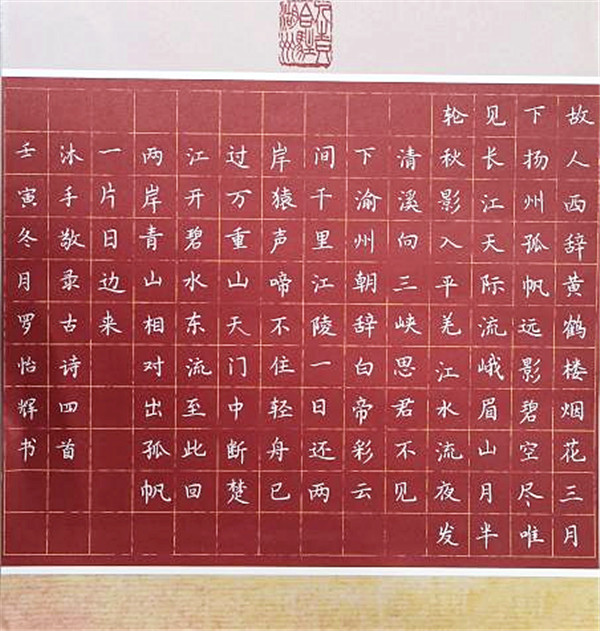 故人西辞黄鹤楼烟花三月
下扬州孤帆远影碧空尽唯
见长江天际流峨眉山月半
轮秋影入平羌江水流夜发
清溪向三峡思君不见
下渝州朝辞白帝彩云
间千里江陵一日还两
岸猿声啼不住轻舟已
过万重山天门中断楚
江开碧水东流至此回
两岸青山相对出孤帆
一片日边来
沐手敬录古诗四首
壬寅冬月罗怡辉书